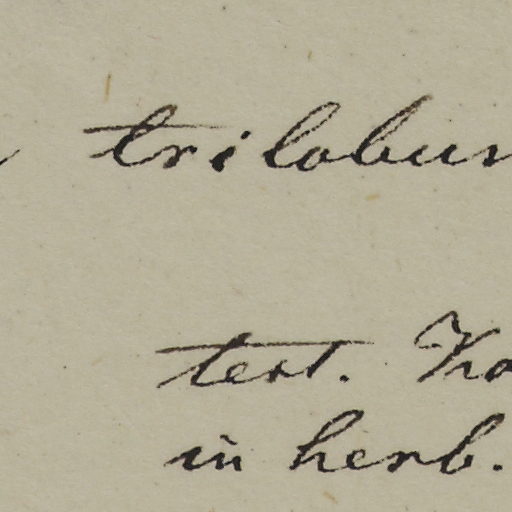 trilobum
test. Ko
in herb.